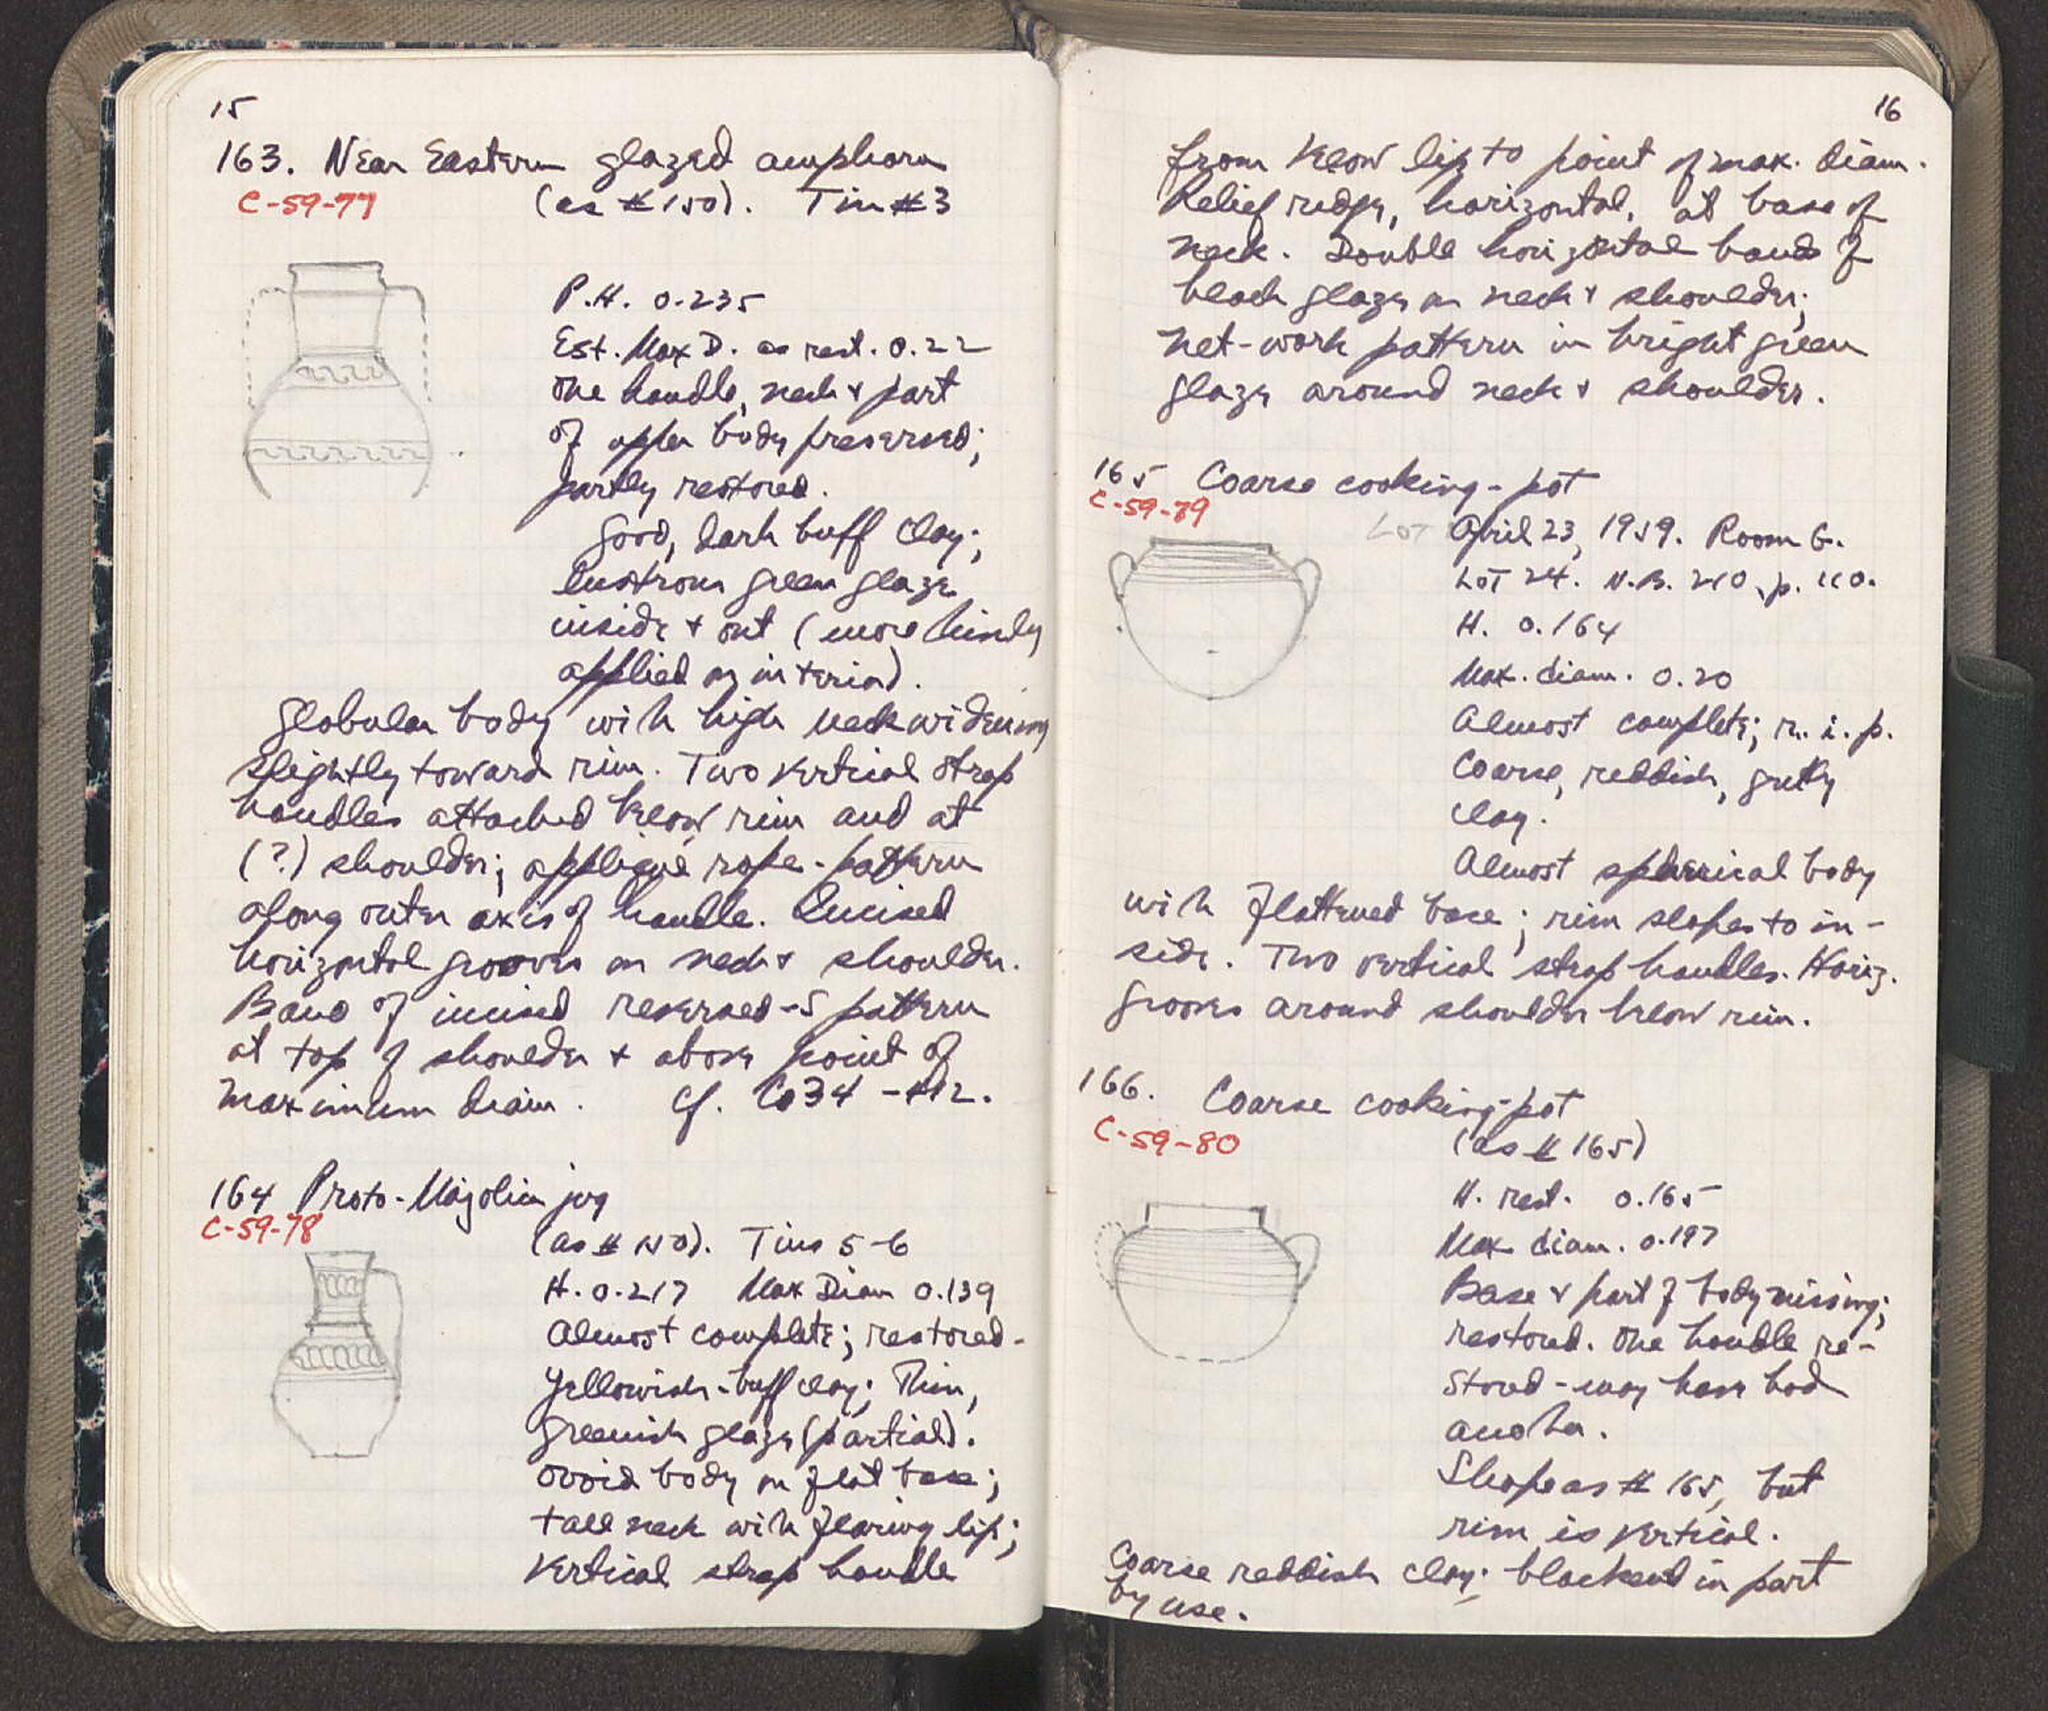 15
163. Near Eastern glazed amphora
C-59-77 (as # 150). Tin #3
P.H. 0.235
Est. Max D. as rest. 0.22
One handle, neck & part
of upper body preserved;
partly restored.
Good, dark buff clay;
lustrous green glaze
inside & out (more thinly
applied on interior).
Globular body with high neck widening
slightly toward rim. Two vertical strap
handles attached below rim and at
(?) shoulder; appliqué rope-pattern
along outer axis of handle. Incised
horizontal grooves on neck & shoulder.
Band of incised reversed-S pattern
at top of shoulder & above point of
maximum diam. Cf. Co34
164 Proto-Majolica jug
C-59-78
(as # 150). Tins 5-6
H. 0.217 Max Diam 0.139
Almost complete; restored.
Yellowish-buff clay; Thin,
greenish glaze (partial).
Ovoid body on flat base;
tall neck with flaring lip;
vertical strap handle
16
from below lip to point of max. diam.
Relief ridge, horizontal, at base of
neck. Double horizontal band of
black glaze on neck & shoulder;
net-work pattern in bright green
glaze around neck & shoulder.
165 Coarse cooking-pot
C-59-79
Lot April 23, 1959. Room 6.
Lot 24. N.B. 210, p. 110.
H. 0.164
Max. diam. 0.20
Almost complete; r. i. p.
Coarse, reddish, gritty
clay.
Almost spherical body
with flattened base; rim slopes to in-
side. Two vertical strap handles. Horiz.
grooves around shoulder below rim.
166. Coarse cooking-pot
C-59-80
(as # 165)
H. rest. 0.165
Max diam. 0.197
Base & part of body missing;
restored. One handle re-
stored - may have had
another.
Shape as # 165, but
rim is vertical.
Coarse reddish clay; blackened in part
by use.